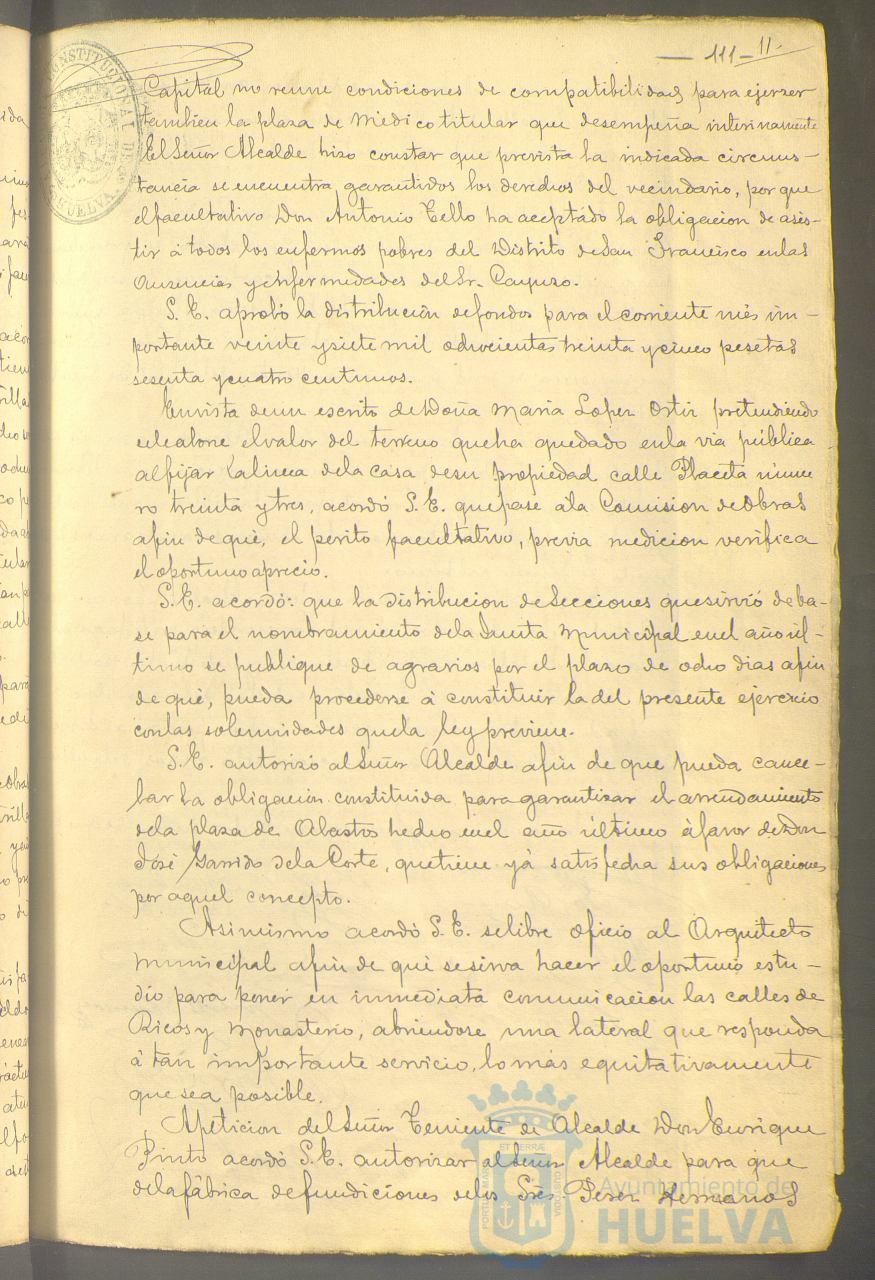 — 111 — 11.
Capital no reune condiciones de compatibilidad para ejerzer
tambien la plaza de Medico titular que desempeña interinamente
El Señor Alcalde hizo constar que prevista la indicada circuns-
tancia se encuentra garantidos los derechos del vecindario, por que
el facultativo Don Antonio Tello ha aceptado la obligacion de asis-
tir á todos los enfermos pobres del Distrito de San Francisco en las
Ausencias y enfermedades del Sr.
S. E. aprobó la distribución de fondos para el corriente més im-
portante veinte y siete mil ochocientas treinta y cinco pesetas
sesenta y cuatro centimos.
En vista de un escrito de Doña Maria Lopez Ortiz pretendiendo
se le abone el valor del terreno que ha quedado en la via pública
al fijar la linea de la casa de su propiedad calle Placeta núme
ro treinta y tres, acordó S. E. que pase a la Comision de Obras
afin de qué, el perito facultativo, previa medicion verifica
el oportuno aprecio.
S. E. acordó: que la distribucion de Secciones que sirvió de ba-
se para el nombramiento de la Junta Municipal en el año úl-
timo se publique de agrarios por el plazo de ocho dias afin
de qué, pueda procederse á constituir la del presente ejercicio
con las solemnidades que la ley previene.
S. E. autorizó al Señor Alcalde afin de que pueda cance-
lar la obligación constituida para garantizar el arrendamiento
de la plaza de Abastos hecho en el año último á favor de Don
José Garrido de la Corte, que tiene yá satisfecha sus obligaciones
por aquel concepto.
Asimismo acordó S. E. se libre oficio al Arquitecto
Municipal afin de qué se sirva hacer el oportuno estu-
dio para poner en inmediata comunicacion las calles de
Ricos y Monasterio, abriendose una lateral que responda
á tan importante servicio, lo más equitativamente
que sea posible.
A peticion del Señor Teniente de Alcalde Don Enrique
Pinto acordó S. E. autorizar al Señor Alcalde para que
de la fábrica de fundiciones de los Srés Perez Hermanos
CONSTITUCIONAL DE
HUELVA
Ayuntamiento de
HUELVA